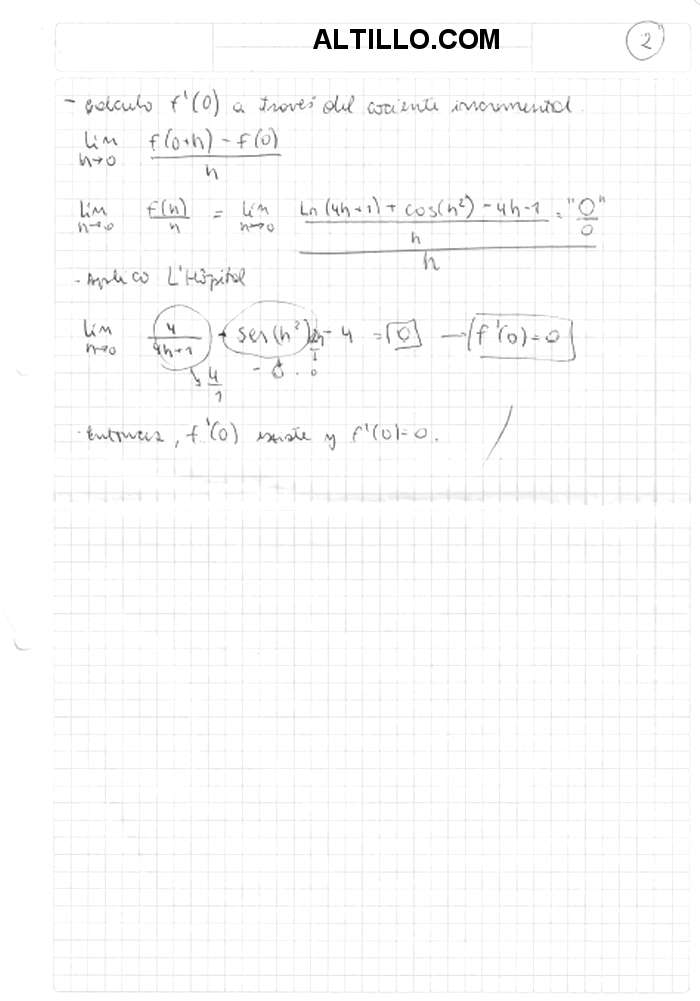 ALTILLO.COM
2
- Calculo f'(0) a través del cociente incremental.
lim h→0 f(0+h) - f(0) / h
lim h→0 f(h) / h = lim h→0 ln(4h+1) + cos(h²) - 4h - 1 / h / h = "0/0"
- Aplico L'Hôpital
lim h→0 4 / 4h+1 - sen(h²) 2h - 4 = 0 → f'(0) = 0
4/1 - 0 . 0
- Entonces, f'(0) existe y f'(0) = 0.